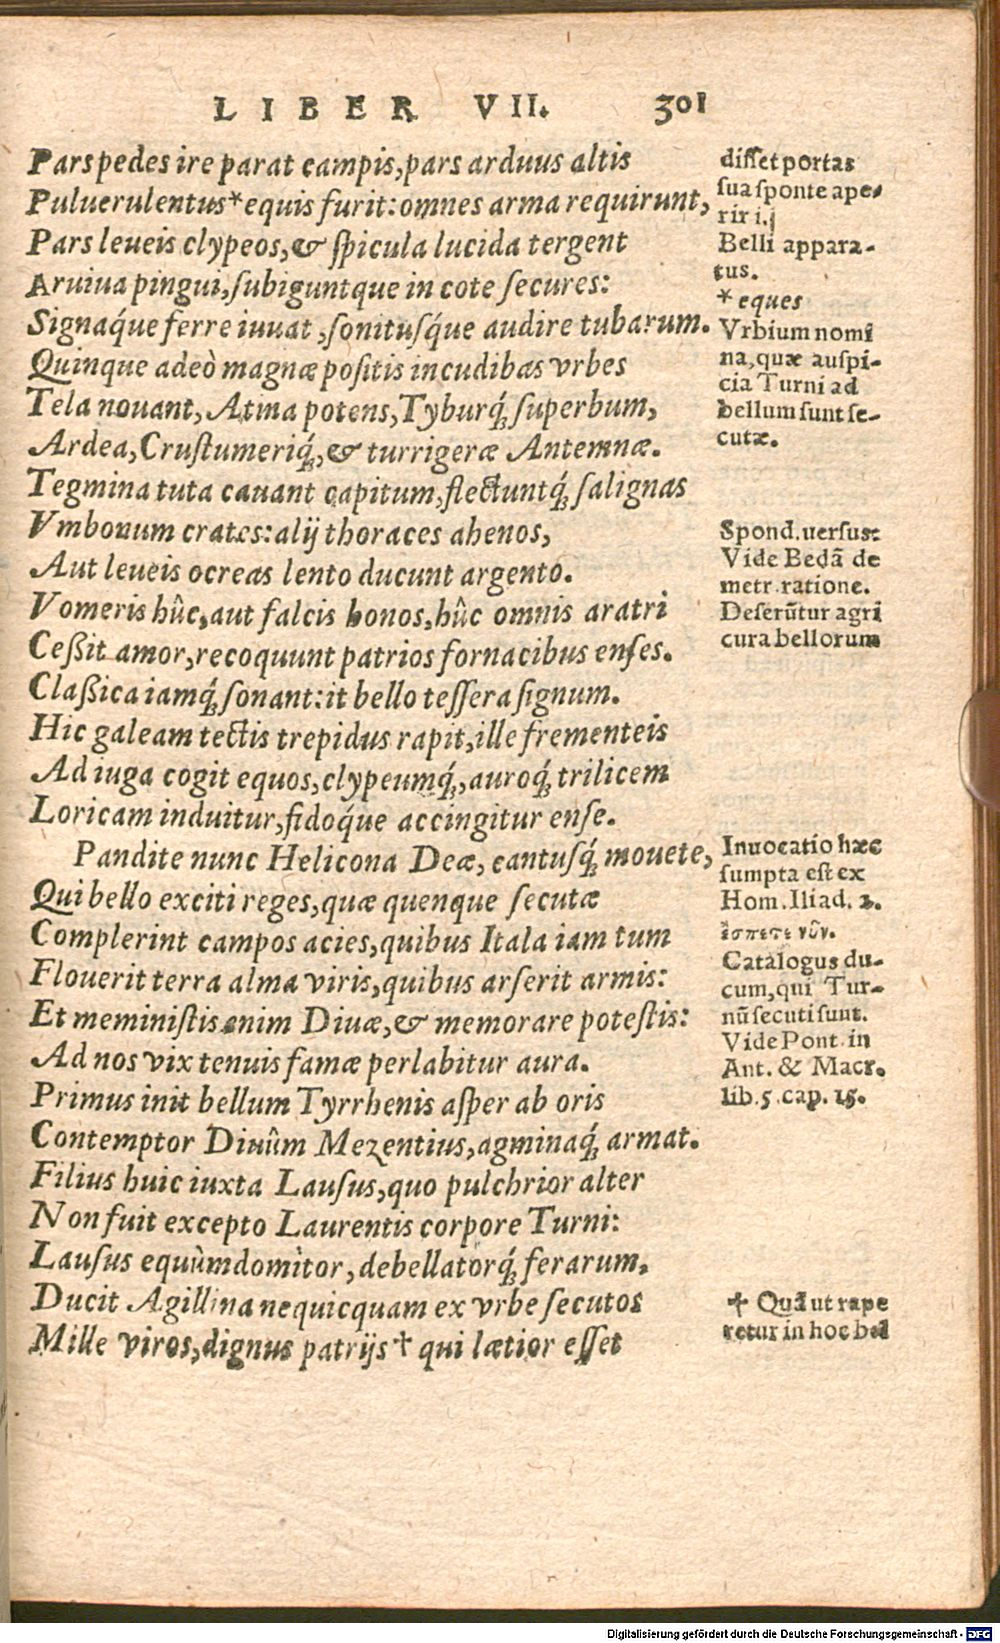 LIBER VII. 301
Pars pedes ire parat campis, pars arduus altis
Puluerulentus* equis furit: omnes arma requirunt,
Pars leueis clypeos, & ſpicula lucida tergent
Aruiua pingui, ſubiguntque in cote ſecures:
Signaq́ue ferre iuuat, ſonituſq́ue audire tubarum.
Quinque adeò magnæ poſitis incudibas vrbes
Tela nouant, Atina potens, Tyburq́; ſuperbum,
Ardea, Cruſtumeriq́;, & turrigeræ Antemnæ.
Tegmina tuta cauant capitum, flectuntq́; ſalignas
Vmbonum crates: alij thoraces ahenos,
Aut leueis ocreas lento ducunt argento.
Vomeris hûc, aut falcis honos, hûc omnis aratri
Ceßit amor, recoquunt patrios fornacibus enſes.
Claßica iamq́; ſonant: it bello teſſera ſignum.
Hic galeam tectis trepidus rapit, ille frementeis
Ad iuga cogit equos, clypeumq́;, auroq́; trilicem
Loricam induitur, fidoq́ue accingitur enſe.
Pandite nunc Helicona Deæ, cantuſq́; mouete,
Qui bello exciti reges, quæ quenque ſecutæ
Complerint campos acies, quibus Itala iam tum
Flouerit terra alma viris, quibus arſerit armis:
Et meminiſtis enim Diuæ, & memorare poteſtis:
Ad nos vix tenuis famæ perlabitur aura.
Primus init bellum Tyrrhenis aſper ab oris
Contemptor Diuûm Mezentius, agminaq́; armat.
Filius huic iuxta Lauſus, quo pulchrior alter
Non fuit excepto Laurentis corpore Turni:
Lauſus equùm domitor, debellatorq́; ferarum,
Ducit Agillina nequicquam ex vrbe ſecutos
Mille viros, dignus patrijs † qui lætior eſſet
diſſet portas
ſua ſponte ape-
riri.
Belli appara-
tus.
* eques
Vrbium nomi
na, quæ auſpi-
cia Turni ad
bellum ſunt ſe-
cutæ.
Spond. uerſus:
Vide Bedā de
metr. ratione.
Deſerūtur agri
cura bellorum
Inuocatio hæc
ſumpta eſt ex
Hom. Iliad. 2.
ἔσπετε νῦν.
Catalogus du-
cum, qui Tur-
nū ſecuti ſunt.
Vide Pont. in
Ant. & Macr.
lib. 5. cap. 15.
† Quā ut rape
retur in hoc bel
Digitalisierung gefördert durch die Deutsche Forschungsgemeinschaft - DFG